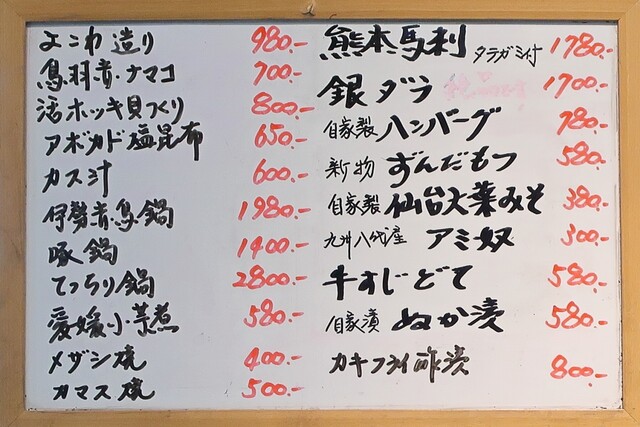 よこわ造り 980.-
鳥羽赤ナマコ 700.-
活ホッキ貝つくり 800.-
アボカド塩昆布 650.-
カス汁 600.-
伊勢赤鳥鍋 1980.-
豚鍋 1400.-
てっちり鍋 2800.-
愛媛小芋煮 580.-
メザシ焼 400.-
カマス焼 500.-
熊本馬刺 タテガミ付 1780.-
銀ダラ 1700.-
自家製ハンバーグ 780.-
新物ずんだもつ 580.-
自家製仙台大葉みそ 380.-
九州八代産アミ奴 300.-
牛すじどて 580.-
自家漬ぬか漬 580.-
カキフライ酢漬 800.-